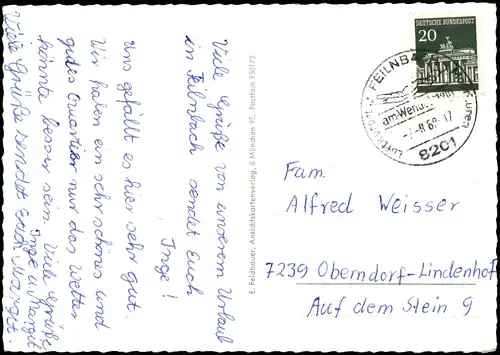 Viele Grüße von unserem Urlaub
in Feilnbach sendet Euch
Inge!
Uns gefällt es hier sehr gut.
Wir haben ein sehr schönes und
gutes Quartier nur das Wetter
könnte besser sein. Viele Grüße
Inge u. Margit
Viele Grüße sendet Euch Margit.
E. Feldbauer, Ansichtskartenverlag, 8 München 95, Postfach 950172
DEUTSCHE BUNDESPOST
20
FEILNB
am Wende
-7.-8.69-17
8201
Fam.
Alfred Weisser
7239 Oberndorf-Lindenhof
Auf dem Stein 9